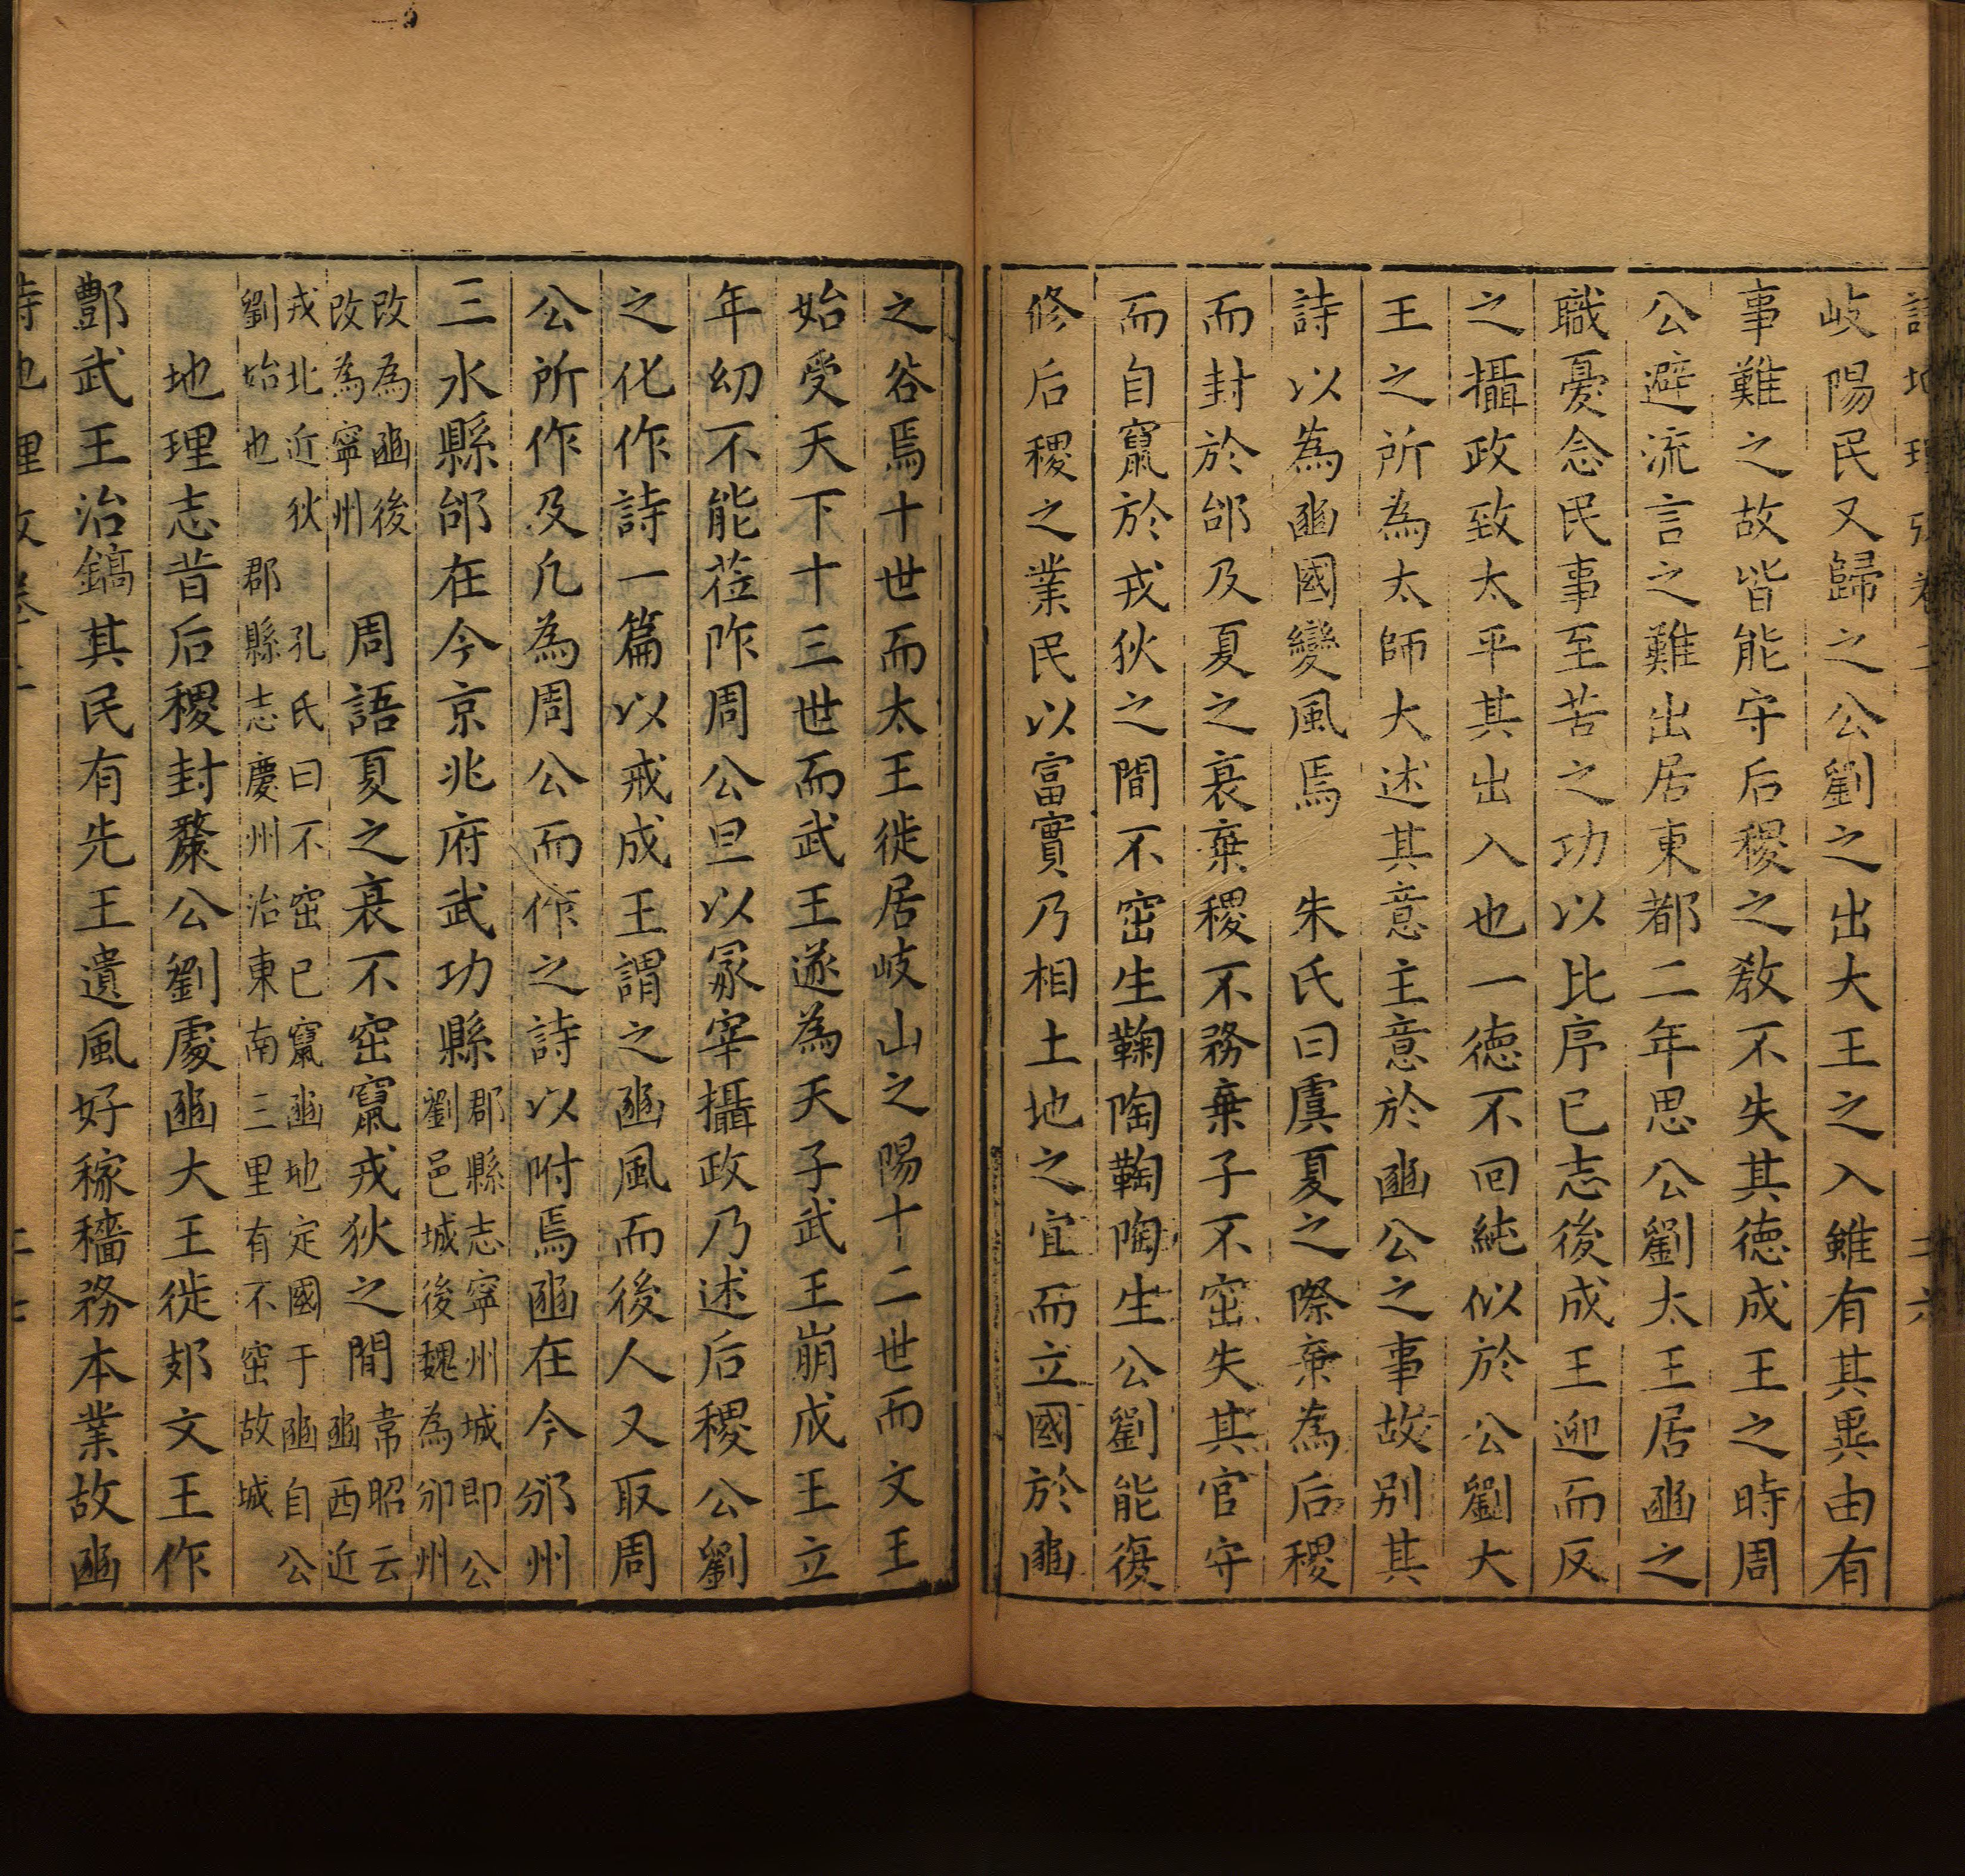 詩地理攷卷二
岐陽民又歸之公劉之出大王之入雖有其異由有
事難之故皆能守后稷之教不失其德成王之時周
公避流言之難出居東都二年思公劉太王居豳之
職憂念民事至苦之功以比序已志後成王迎而反
之攝政致太平其出入也一德不回純似於公劉大
王之所為太師大述其意主意於豳公之事故別其
詩以為豳國變風焉　朱氏曰虞夏之際棄為后稷
而封於邰及夏之衰棄稷不務棄子不窋失其官守
而自竄於戎狄之間不窋生鞠陶鞠陶生公劉能復
修后稷之業民以富實乃相土地之宜而立國於豳
之谷焉十世而太王徙居岐山之陽十二世而文王
始受天下十三世而武王遂為天子武王崩成王立
年幼不能莅阼周公旦以冢宰攝政乃述后稷公劉
之化作詩一篇以戒成王謂之豳風而後人又取周
公所作及凡為周公而作之詩以附焉豳在今邠州
三水縣邰在今京兆府武功縣
郡縣志寧州城即公
劉邑城後魏為邠州
改為豳後
改為寧州
周語夏之衰不窋竄戎狄之間
韋昭云
豳西近
戎北近狄　孔氏曰不窋已竄豳地定國于豳自公
劉始也　郡縣志慶州治東南三里有不窋故城
地理志昔后稷封斄公劉處豳大王徙𨙸文王作
酆武王治鎬其民有先王遺風好稼穡務本業故豳
詩地理攷卷二